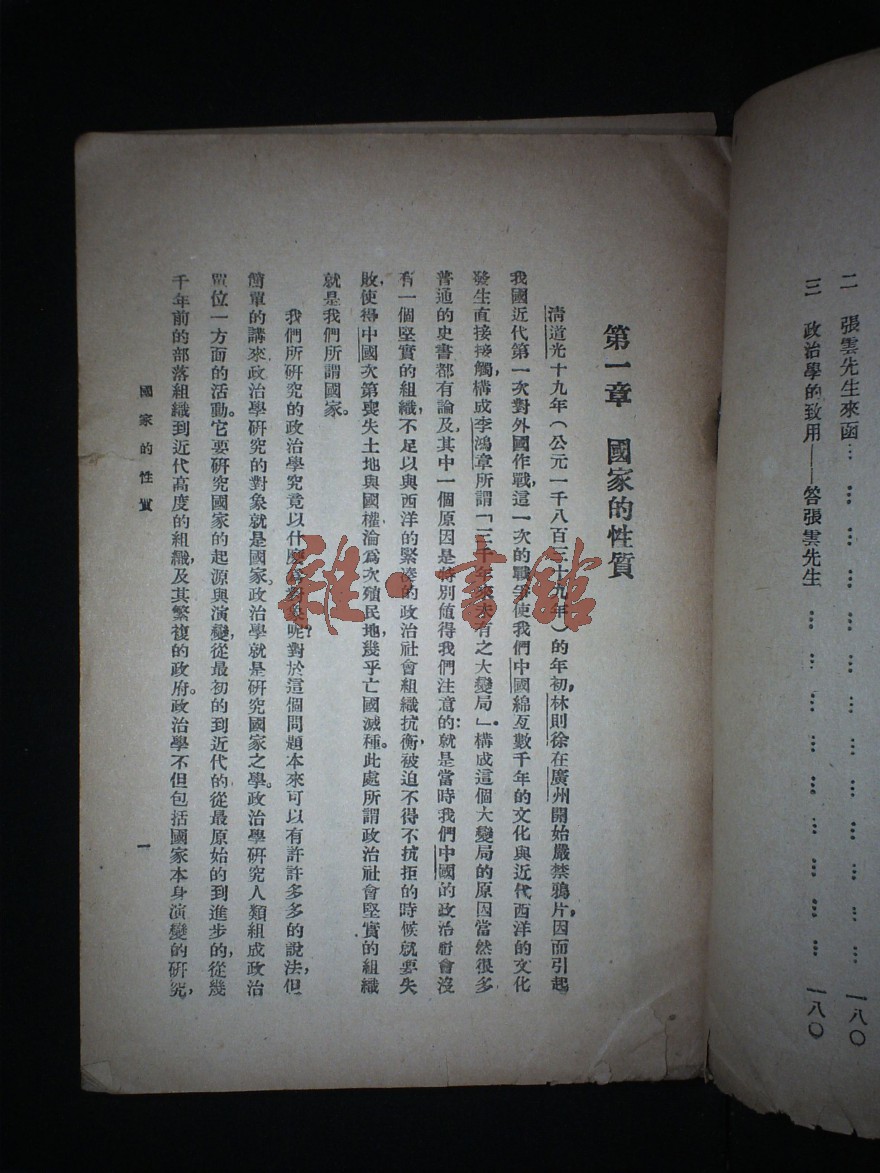 二 張雲先生來函 ………………… 一八〇
三 政治學的致用——答張雲先生 ………………… 一八〇
第一章 國家的性質
清道光十九年(公元一千八百三十九年)的年初,林則徐在廣州開始嚴禁鴉片,因而引起
我國近代第一次對外國作戰,這一次的戰爭使我們中國綿亙數千年的文化與近代西洋的文化
發生直接接觸,構成李鴻章所謂「三千年來未有之大變局」。構成這個大變局的原因當然很多
普通的史書都有論及,其中一個原因是特別値得我們注意的:就是當時我們中國的政治社會沒
有一個堅實的組織,不足以與西洋的緊湊的政治社會組織抗衡,被迫不得不抗拒的時候就要失
敗,使得中國次第喪失土地與國權,淪爲次殖民地,幾乎亡國滅種。此處所謂政治社會堅實的組織
就是我們所謂國家。
我們所硏究的政治學究竟以什麼爲對象呢?對於這個問題本來可以有許許多多的說法,但
簡單的講來,政治學硏究的對象就是國家。政治學就是硏究國家之學。政治學硏究人類組成政治
單位一方面的活動。它要硏究國家的起源與演變,從最初的到近代的,從最原始的到進步的,從幾
千年前的部落組織到近代高度的組織,及其繁複的政府。政治學不但包括國家本身演變的硏究,
國家的性質 一
雜·書館